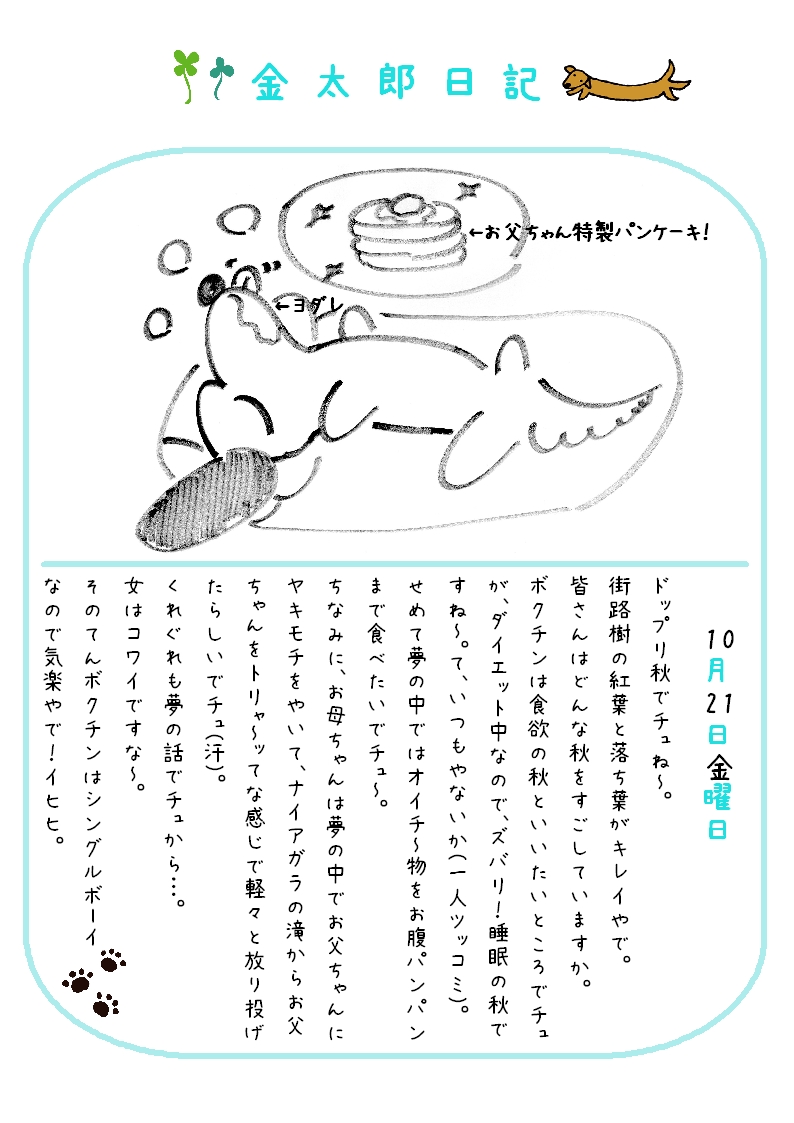 金太郎日記
←お父ちゃん特製パンケーキ!
←ヨダレ
10月21日金曜日
ドップリ秋でチュね~。
街路樹の紅葉と落ち葉がキレイやで。
皆さんはどんな秋をすごしていますか。
ボクチンは食欲の秋といいたいところでチュ
が、ダイエット中なので、ズバリ!睡眠の秋で
すね~。て、いつもやないか(一人ツッコミ)。
せめて夢の中ではオイチ~物をお腹パンパン
まで食べたいでチュ~。
ちなみに、お母ちゃんは夢の中でお父ちゃんに
ヤキモチをやいて、ナイアガラの滝からお父
ちゃんをトリャ~ッてな感じで軽々と放り投げ
たらしいでチュ(汗)。
くれぐれも夢の話でチュから…。
女はコワイですな~。
そのてんボクチンはシングルボーイ
なので気楽やで!イヒヒ。